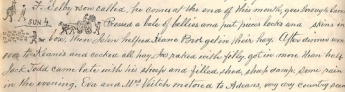 F. Selby son called, he comes at the end of this month, gee
SUN 4. Pressed a bale of bellies and put pieces locks and skins in
box, then Jim helped Keane Bros get in their hay. After dinner
to Keane's and cocked all hay, he raked with filly, got in more than half
Jack Todd came late with his sheep and filled shed, sheep damp, some rain
in the evening. Eva and Mrs Veitch motored to Adeans, very dry country